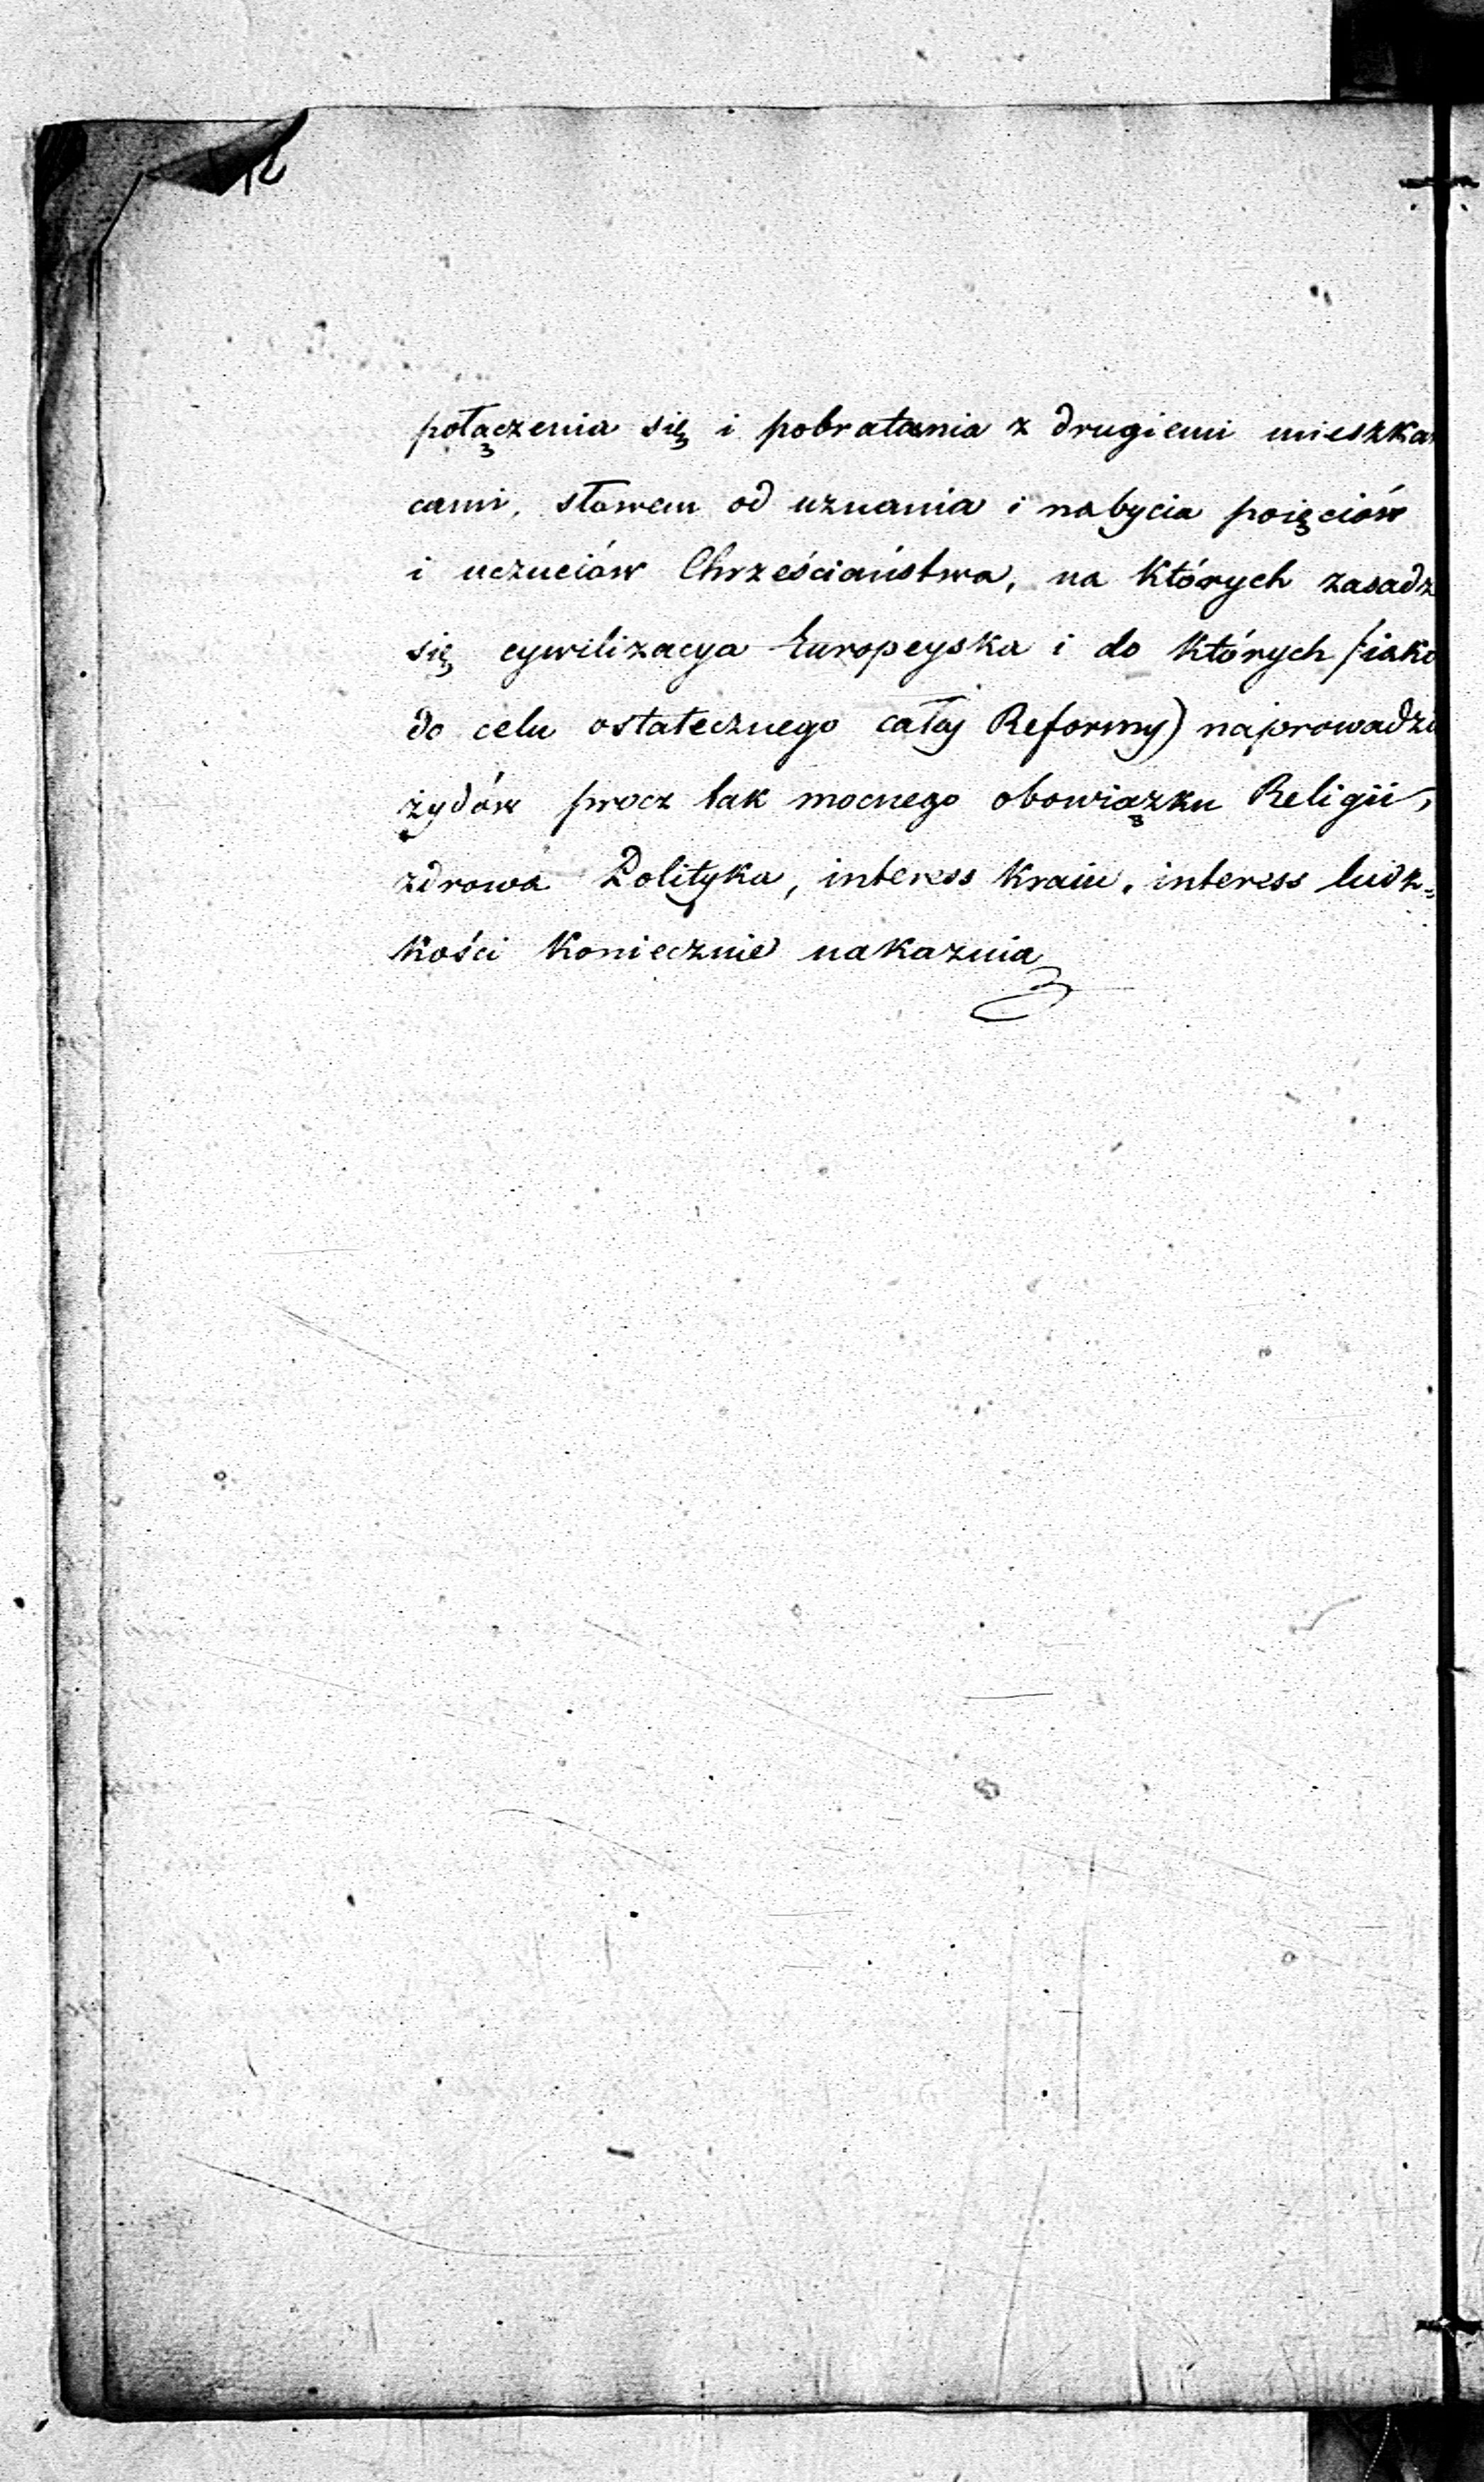 połączenia się i pobratania z drugiemi mieszkań
cami, słowem od uznania i nabycia poięciów
i uczuciów Chrześciaństwa, na których zasadz
się cywilizacya Europeyska i do których /iako
do celu ostatecznego całej Reformy) naprowadzi
żydów procz tak mocnego obowiązku Religii,
zdrowa Polityka, interess Kraiu, interess ludz=
kości koniecznie nakazuia